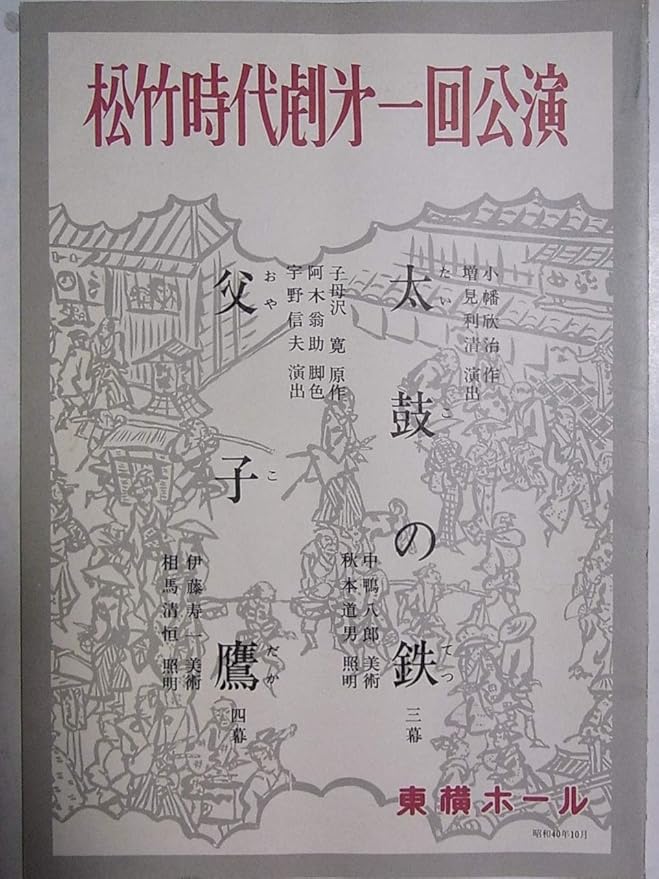 松竹時代劇才一回公演
小幡欣治 作
増見利清 演出
太鼓の鉄 三幕
たいこ てつ
中鴨八郎 美術
秋本道男 照明
子母沢 寛 原作
阿木翁助 脚色
宇野信夫 演出
父子鷹 四幕
おやこだか
伊藤寿一 美術
相馬清恒 照明
東横ホール
昭和40年10月